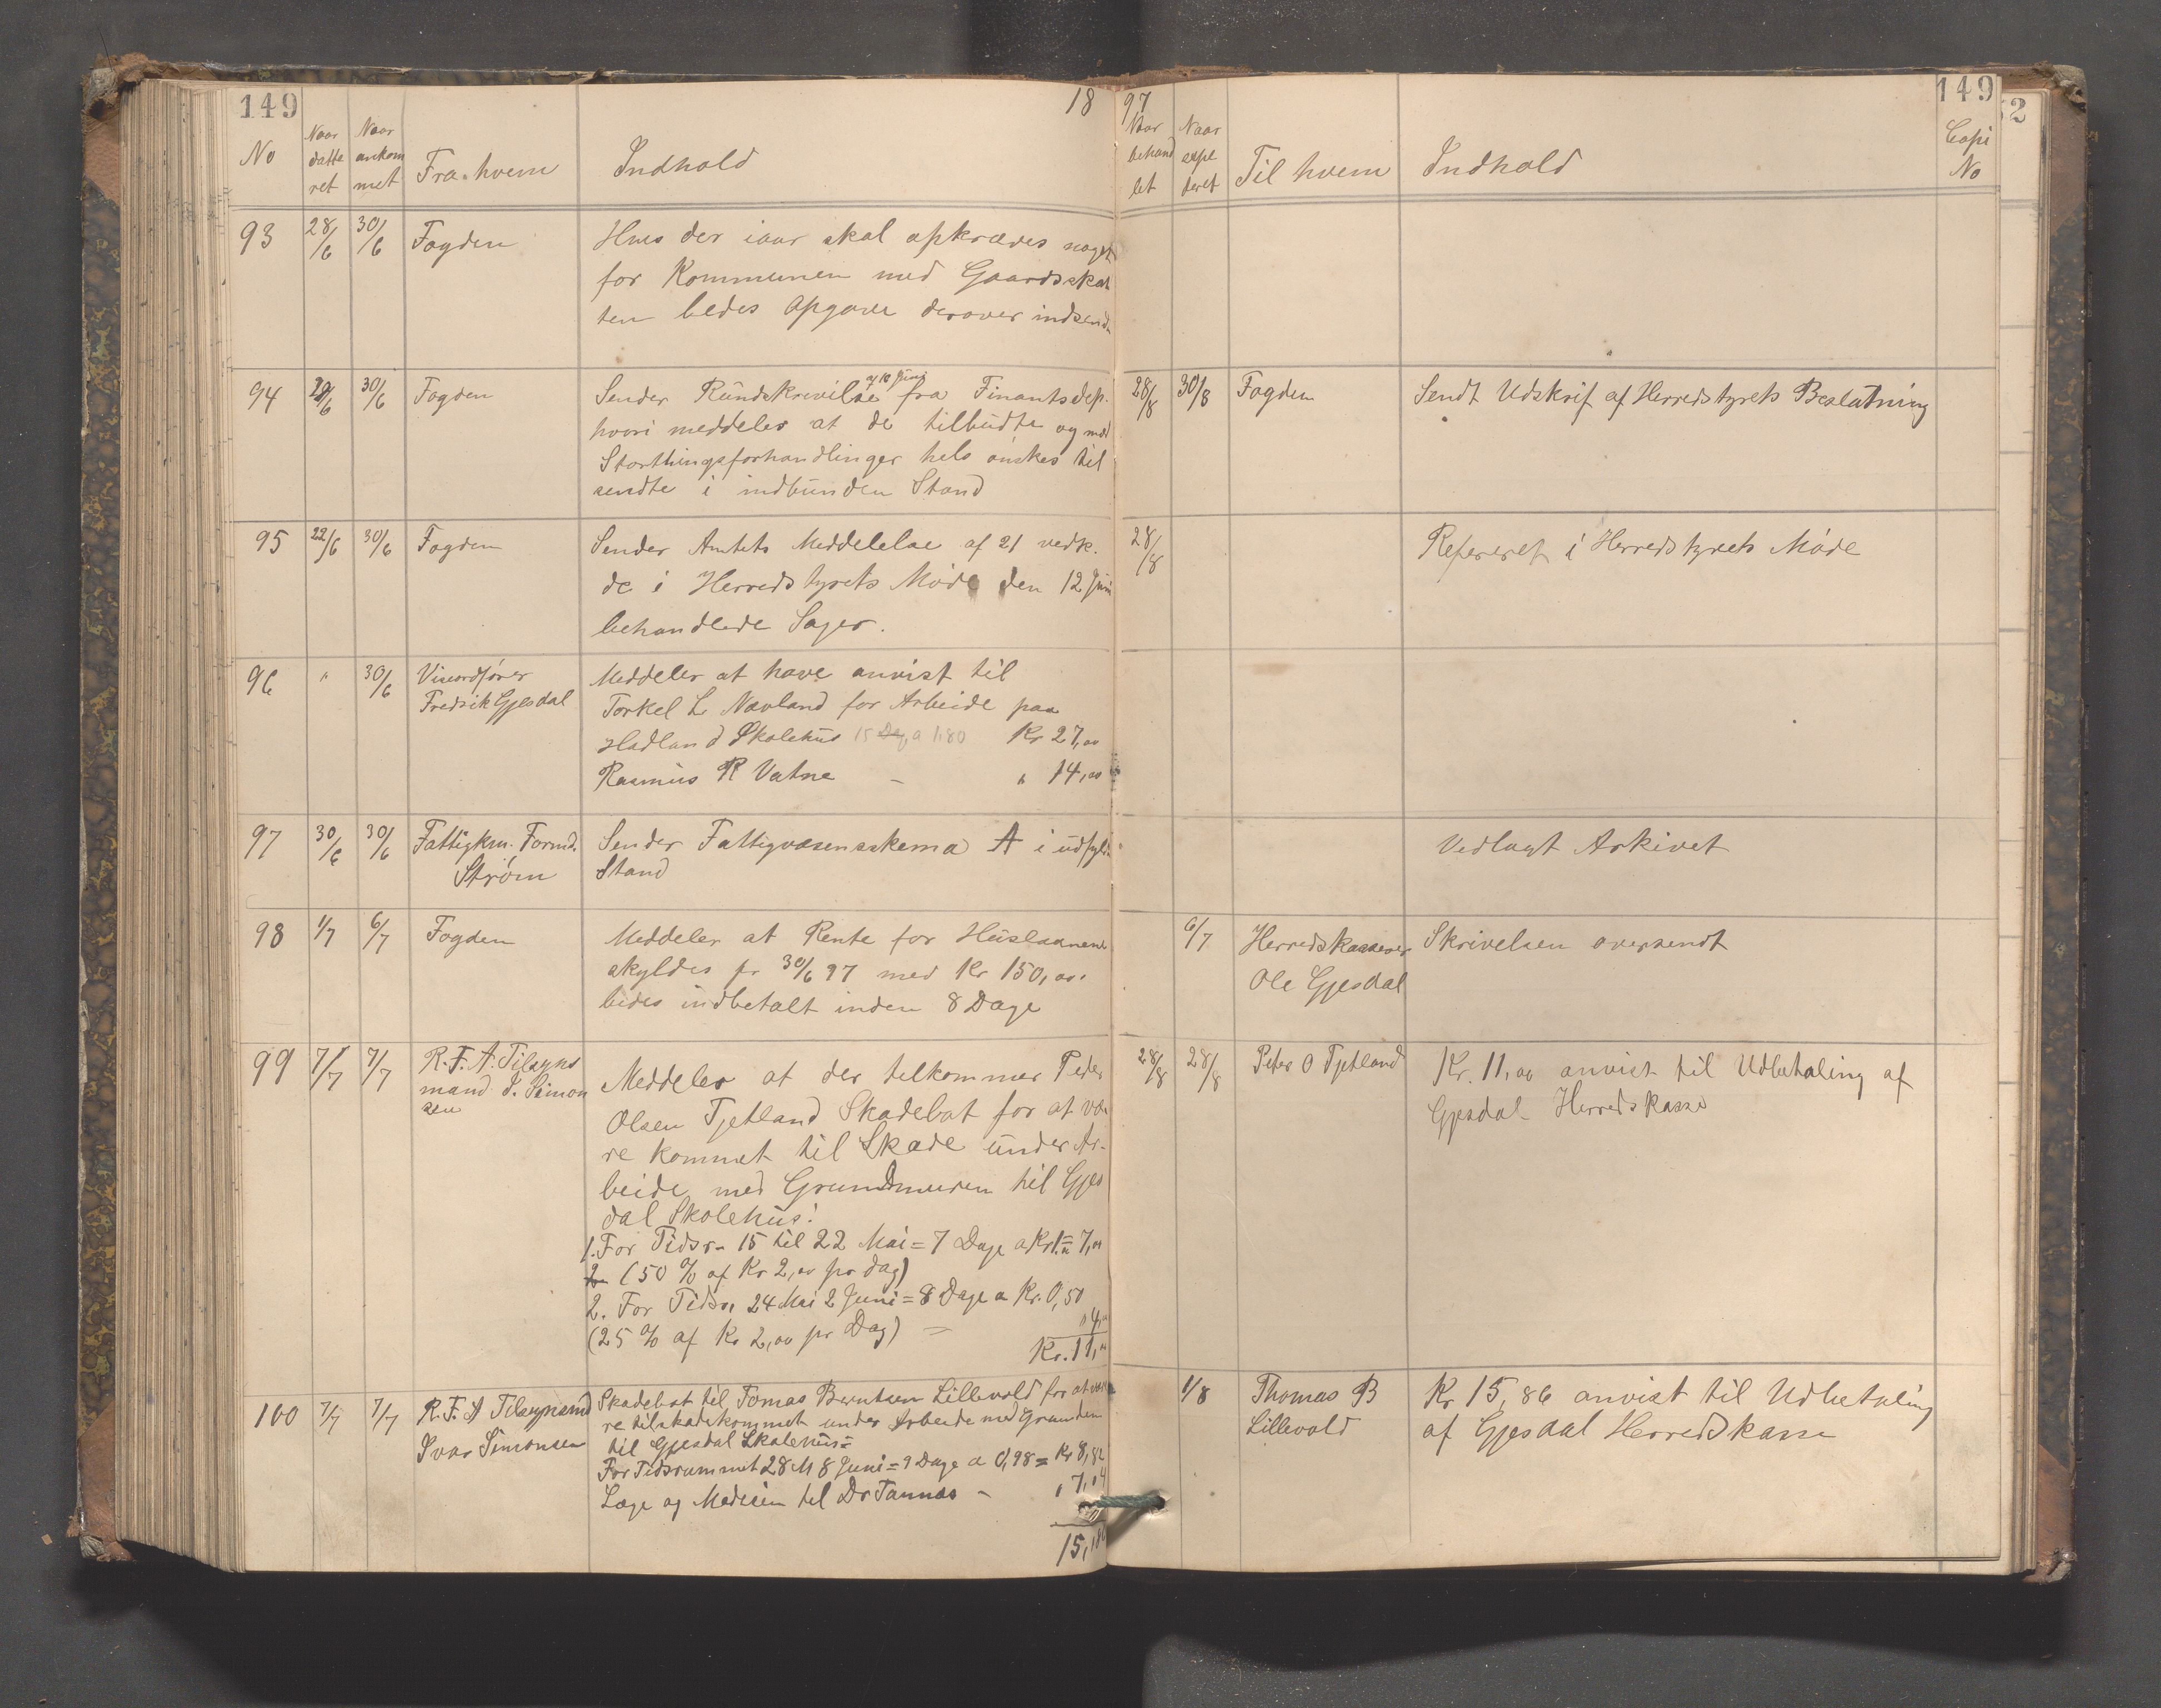 149
18
No
Naar datte ret
Naar ankom met
Fra hvem
Indhold
93
28/6
30/6
Fogden
Hvis der iaar skal opkræves noget
for Kommunen med Gaardsskat
ten bedes Opgave derover indsendt
94
29/6
30/6
Fogden
af 18 Juni
Sender Rundskrivelse fra Finantsdep.
hvori meddeles at de tilbudte og med
Storthingsforhandlinger hels ønskes til
sendte i indbunden Stand
95
22/6
30/6
Fogden
Sender Amtets Meddelelse af 21 vedk.
de i Herredstyrets Møde den 12 Juni
behandlede Sager.
96
"
30/6
Viseordfører
Fredrik Gjesdal
Meddeler at have anvist til
Torkel L Navland for Arbeide paa
Hadland Skolehus 15 Dag a 1.80 Kr 27,00
Rasmus R Vatne - " 14,00
97
30/6
30/6
Fattigkm. Formd.
Strøm
Sender Fattigvæsensskema A i udfyldt
Stand
98
1/7
6/7
Fogden
Meddeler at Rente for Huslaanene
skyldes pr 30/6 97 med Kr 150,00.
bedes indbetalt inden 8 Dage
99
7/7
7/7
R.F.A. Tilsyns
mand S. Simon
sen
Meddeler at der tilkommer Peder
Olsen Tjetland Skadebot for at væ
re kommet til Skade under Ar-
beide med Grundmuren til Gjes
dal Skolehus:
1. For Tidsr. 15 til 22 Mai = 7 Dage a Kr 1 = 7,00
(50 % af Kr 2,00 pr dag)
2. For Tidsr. 24 Mai 2 Juni = 8 Dage a Kr. 0,50
(25 % af Kr 2,00 pr Dag) - " 4,00
Kr. 11,00
100
7/7
7/7
R.F.A Tilsynsmd
Ivar Simonsen
Skadebot til Tomas Berntsen Lillevold for at væ
re tilskadekommet under Arbeide med Grunden
til Gjesdal Skolehus:
For Tidsrummet 28 M 8 Juni = 9 Dage a 0,98 = Kr 8,82
Læge og Medicin til Dr Tannæs - " 7,04
15,86
97
149
Naar behand let
Naar expe deret
Til hvem
Indhold
Copi No
28/8
30/8
Fogden
Sendt Udskrif af Herredstyrets Beslutning
28/8
Refereret i Herredstyrets Møde
Vedlagt Arkivet
6/7
Herredskasserer
Ole Gjesdal
Skrivelsen oversendt
28/8
28/8
Peter O Tjetland
Kr. 11,00 anvist til Udbetaling af
Gjesdal Herredskasse
1/8
Thomas B
Lillevold
Kr 15,86 anvist til Udbetaling
af Gjesdal Herredskasse